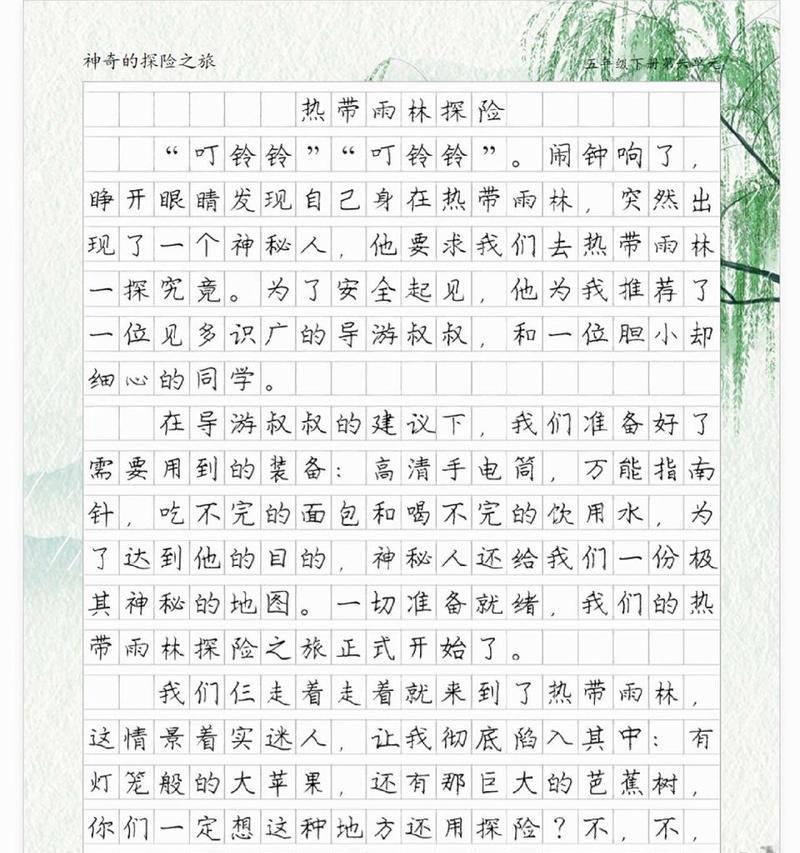 神奇的探险之旅
五年级下册第六单元
热带雨林探险
“叮铃铃”“叮铃铃”。闹钟响了，
睁开眼睛发现自己身在热带雨林，突然出
现了一个神秘人，他要求我们去热带雨林
一探究竟。为了安全起见，他为我推荐了
一位见多识广的导游叔叔，和一位胆小却
细心的同学。
在导游叔叔的建议下，我们准备好了
需要用到的装备：高清手电筒，万能指南
针，吃不完的面包和喝不完的饮用水，为
了达到他的目的，神秘人还给我们一份极
其神秘的地图。一切准备就绪，我们的热
带雨林探险之旅正式开始了。
我们仨走着走着就来到了热带雨林，
这情景着实迷人，让我彻底陷入其中：有
灯笼般的大苹果，还有那巨大的芭蕉树，
你们一定想这种地方还用探险？不，不，